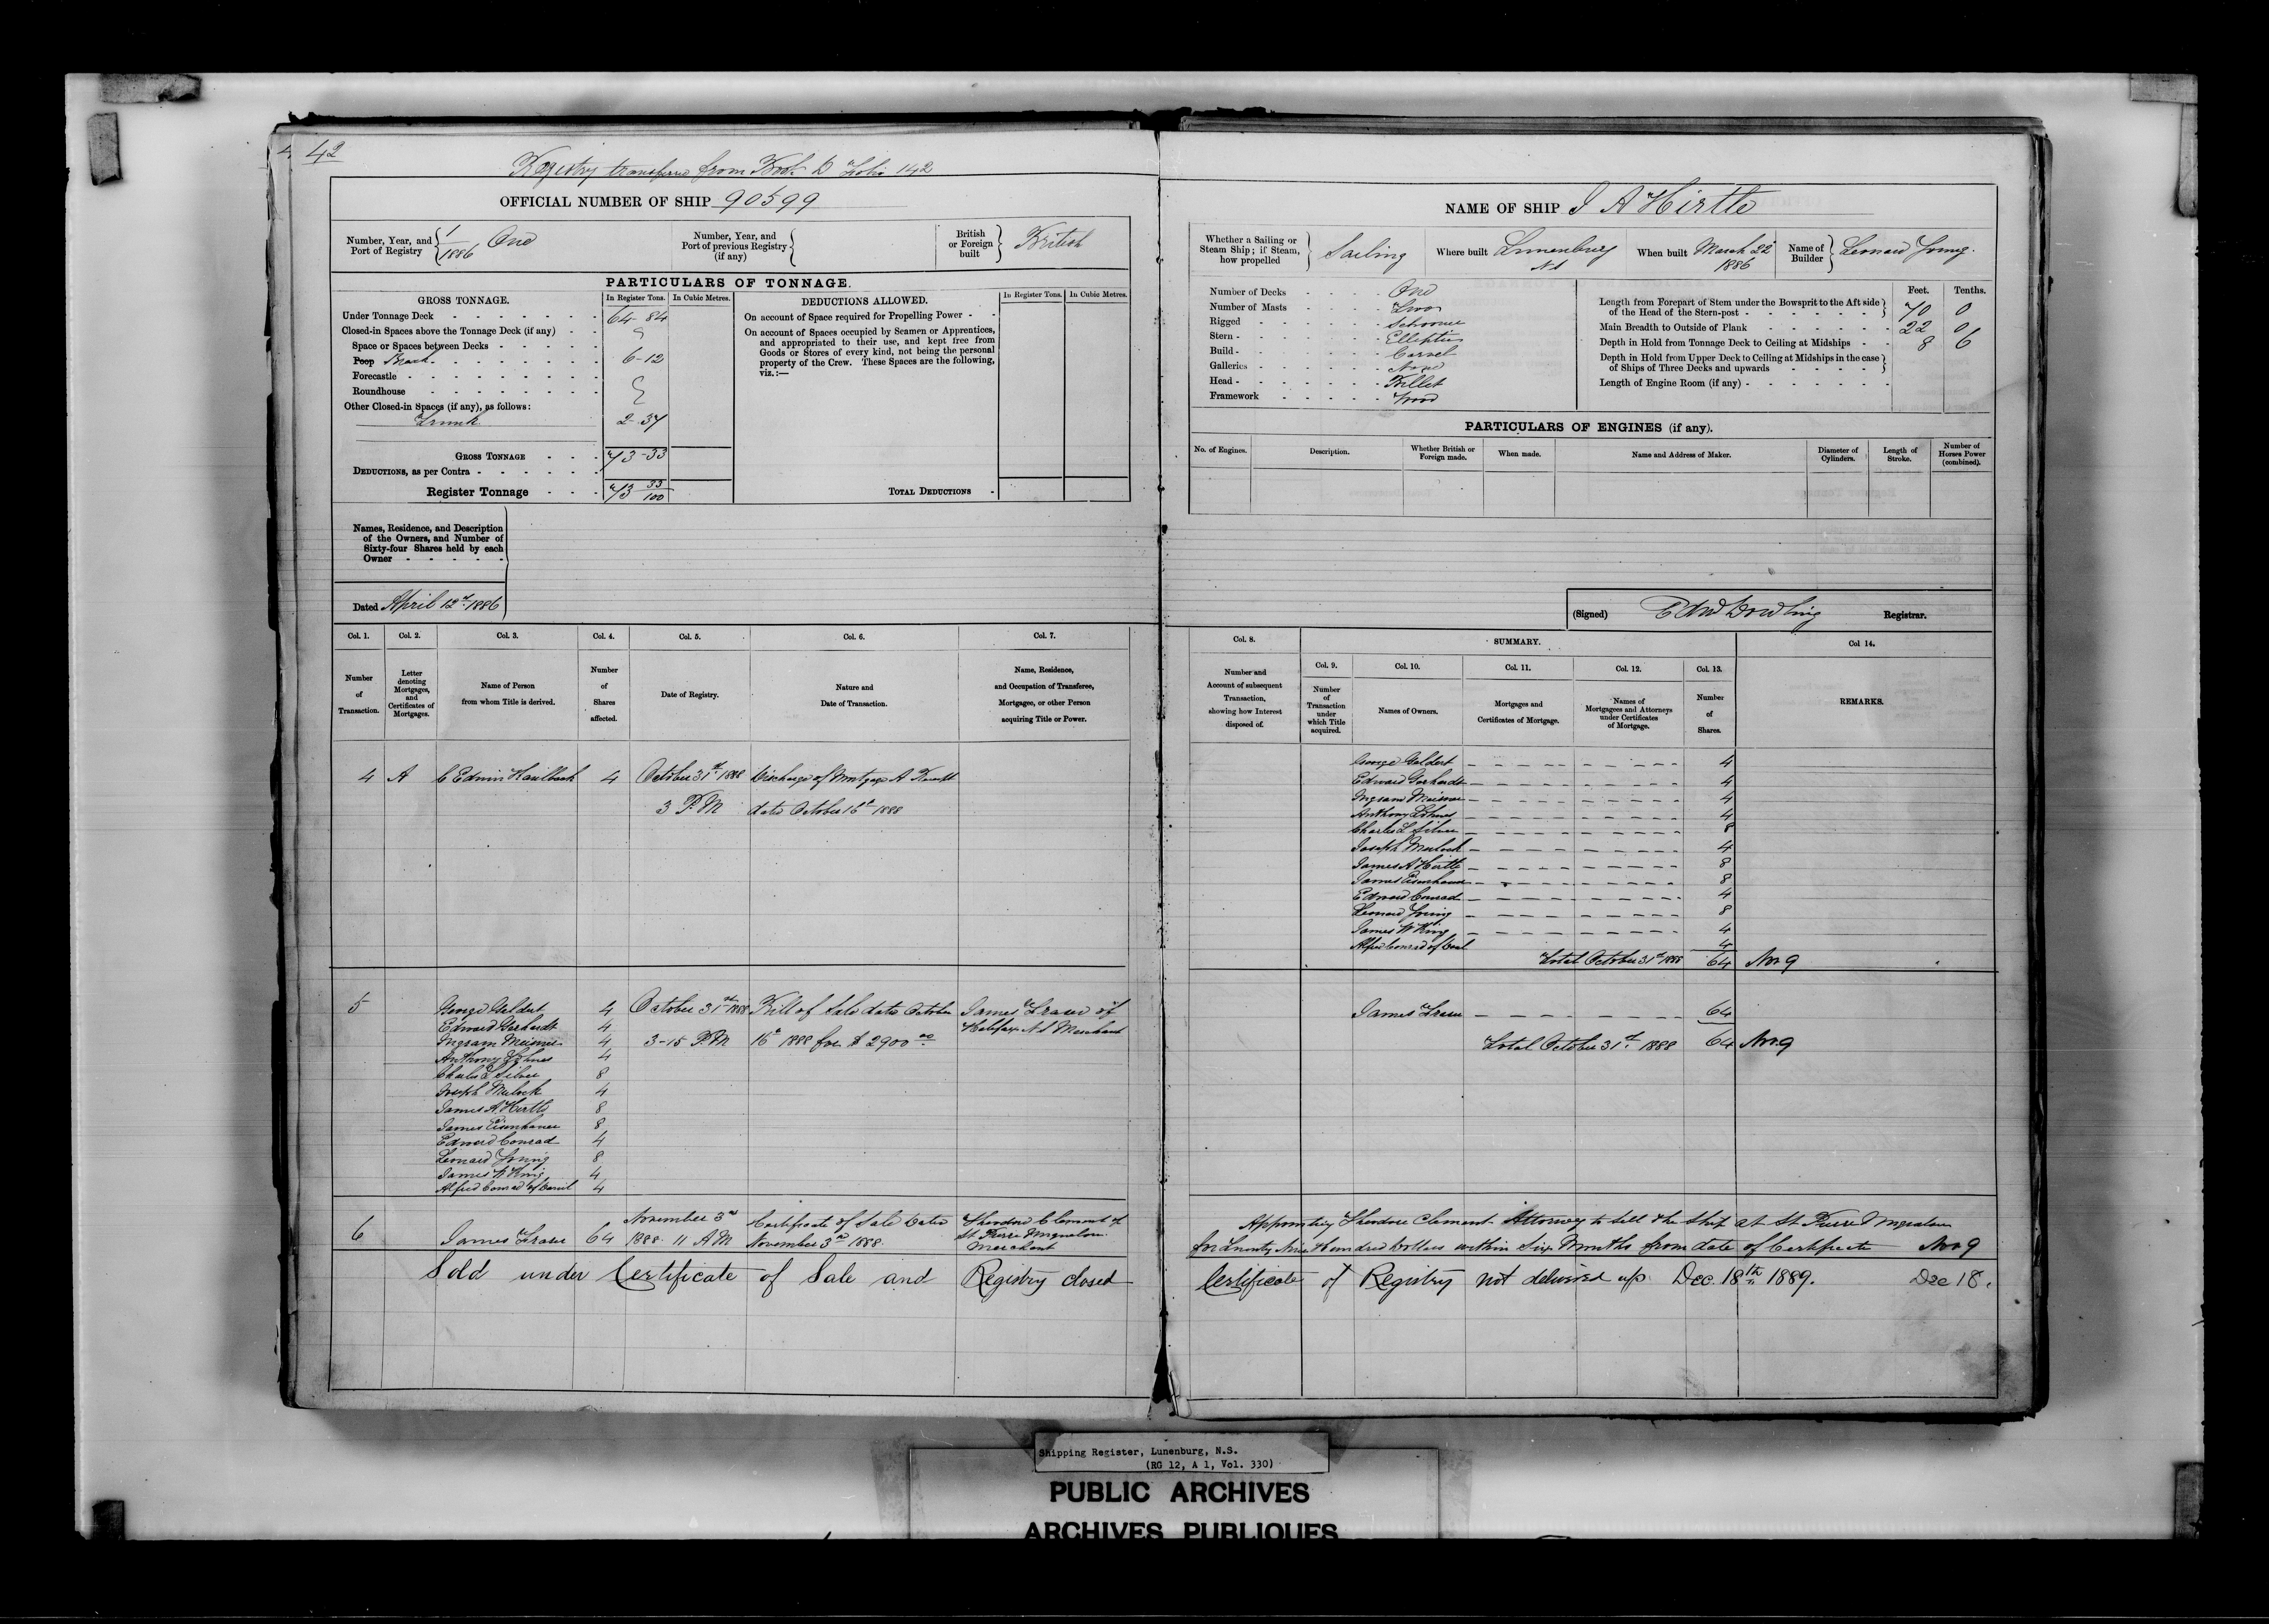 42
Registry transferred from Book D Folio 142
OFFICIAL NUMBER OF SHIP 90599
Number, Year, and Port of Registry 1/1886 One
Number, Year, and Port of previous Registry (if any)
British or Foreign built British
PARTICULARS OF TONNAGE.
GROSS TONNAGE. In Register Tons. In Cubic Metres.
Under Tonnage Deck 64-84
Closed-in Spaces above the Tonnage Deck (if any)
Space or Spaces between Decks
Poop Break 6-12
Forecastle
Roundhouse
Other Closed-in Spaces (if any), as follows:
Trunk 2-37
GROSS TONNAGE 73-33
DEDUCTIONS, as per Contra
Register Tonnage 73 33/100
DEDUCTIONS ALLOWED. In Register Tons. In Cubic Metres.
On account of Space required for Propelling Power
On account of Spaces occupied by Seamen or Apprentices,
and appropriated to their use, and kept free from
Goods or Stores of every kind, not being the personal
property of the Crew. These Spaces are the following,
viz.:—
TOTAL DEDUCTIONS
Names, Residence, and Description
of the Owners, and Number of
Sixty-four Shares held by each
Owner
Dated April 12th 1886
Col. 1. Col. 2. Col. 3. Col. 4. Col. 5. Col. 6. Col. 7.
Number of Transaction.
Letter denoting Mortgages, and Certificates of Mortgages.
Name of Person from whom Title is derived.
Number of Shares affected.
Date of Registry.
Nature and Date of Transaction.
Name, Residence, and Occupation of Transferee, Mortgagee, or other Person acquiring Title or Power.
4 A C Edwin Kaulbach 4 October 31st 1888 Discharge of Mortgage A
3 P.M dated October 16th 1888
5 George Geldert 4 October 31st 1888 Bill of Sale dated October James Fraser of
Edward Gerhardt 4 Halifax N.S Merchant
Ingram Meisner 4 3-15 P.M 16th 1888 for $2900.00
Anthony Lohnes 4
Charles L Silver 8
Joseph Mulock 4
James A. Hirtle 8
James Eisenhauer 8
Edward Conrad 4
Leonard Young 8
James W King 4
Alfred Conrad of Danil 4
6 James Fraser 64 November 3rd 1888. 11 A.M Certificate of Sale Dated November 3rd 1888. Theodore Clement of St Pierre Miquelon Merchant
Sold under Certificate of Sale and Registry closed
NAME OF SHIP J A Hirtle
Whether a Sailing or Steam Ship; if Steam, how propelled Sailing
Where built Lunenburg NS
When built March 22 1886
Name of Builder Leonard Young
Number of Decks One
Number of Masts Two
Rigged Schooner
Stern Elliptic
Build Carvel
Galleries None
Head Billet
Framework Wood
Feet. Tenths.
Length from Forepart of Stem under the Bowsprit to the Aft side of the Head of the Stern-post 70 0
Main Breadth to Outside of Plank 22 0
Depth in Hold from Tonnage Deck to Ceiling at Midships 8 6
Depth in Hold from Upper Deck to Ceiling at Midships in the case of Ships of Three Decks and upwards
Length of Engine Room (if any)
PARTICULARS OF ENGINES (if any).
No. of Engines. Description. Whether British or Foreign made. When made. Name and Address of Maker. Diameter of Cylinders. Length of Stroke. Number of Horses Power (combined).
(Signed) Edw Dowling Registrar.
Col. 8. SUMMARY. Col 14.
Col. 9. Col. 10. Col. 11. Col. 12. Col. 13.
Number and Account of subsequent Transaction, showing how Interest disposed of.
Number of Transaction under which Title acquired.
Names of Owners.
Mortgages and Certificates of Mortgage.
Names of Mortgagees and Attorneys under Certificates of Mortgage.
Number of Shares.
REMARKS.
George Geldert 4
Edward Gerhardt 4
Ingram Meisner 4
Anthony Lohnes 4
Charles L Silver 8
Joseph Mulock 4
James A Hirtle 8
James Eisenhauer 8
Edward Conrad 4
Leonard Young 8
James W King 4
Alfred Conrad of Danl 4
Total October 31st 1888 64 Nov 9
James Fraser 64
Total October 31st 1888 64 Nov 9
Appointing Theodore Clement Attorney to sell the Ship at St Pierre Miquelon
for Twenty Nine Hundred Dollars within Six Months from date of Certificate Nov 9
Certificate of Registry not delivered up. Dec. 18th 1889. Dec 18.
Shipping Register, Lunenburg, N.S.
(RG 12, A 1, Vol. 330)
PUBLIC ARCHIVES
ARCHIVES PUBLIQUES